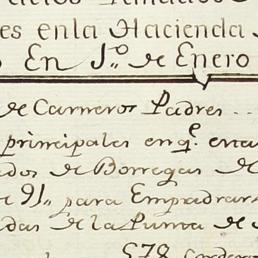 es enla Hacienda
En J.º de Enero
de Carneros Padres
principales en q.e
dos de Borregas de
91,, para Empadrar
das de la Punta de
578